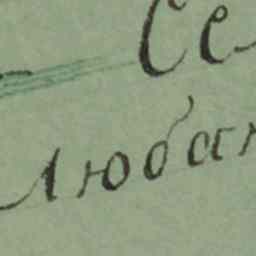 Се
Любан